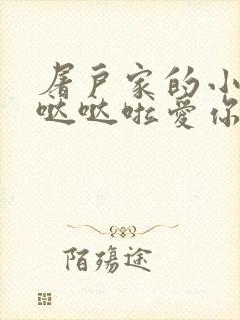 屠户家的小
哒哒啦爱你
陌殇途